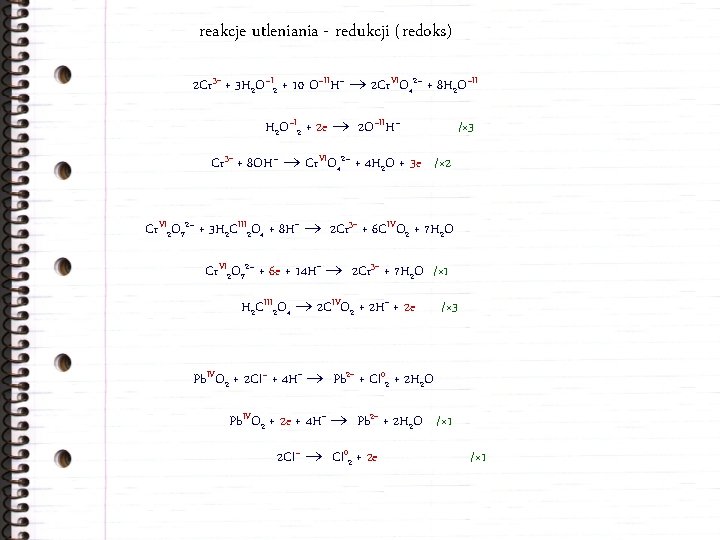 reakcje utleniania - redukcji (redoks)
2Cr³⁻ + 3H₂O⁻ᴵ₂ + 10 O⁻ᴵᴵH⁻ → 2CrⱽᴵO₄²⁻ + 8H₂O⁻ᴵᴵ
H₂O⁻ᴵ₂ + 2e → 2O⁻ᴵᴵH⁻ /×3
Cr³⁻ + 8OH⁻ → CrⱽᴵO₄²⁻ + 4H₂O + 3e /×2
Crⱽᴵ₂O₇²⁻ + 3H₂Cᴵᴵᴵ₂O₄ + 8H⁻ → 2Cr³⁻ + 6CᴵⱽO₂ + 7H₂O
Crⱽᴵ₂O₇²⁻ + 6e + 14H⁻ → 2Cr³⁻ + 7H₂O /×1
H₂Cᴵᴵᴵ₂O₄ → 2CᴵⱽO₂ + 2H⁻ + 2e /×3
PbᴵⱽO₂ + 2Cl⁻ + 4H⁻ → Pb²⁻ + Cl⁰₂ + 2H₂O
PbᴵⱽO₂ + 2e + 4H⁻ → Pb²⁻ + 2H₂O /×1
2Cl⁻ → Cl⁰₂ + 2e /×1